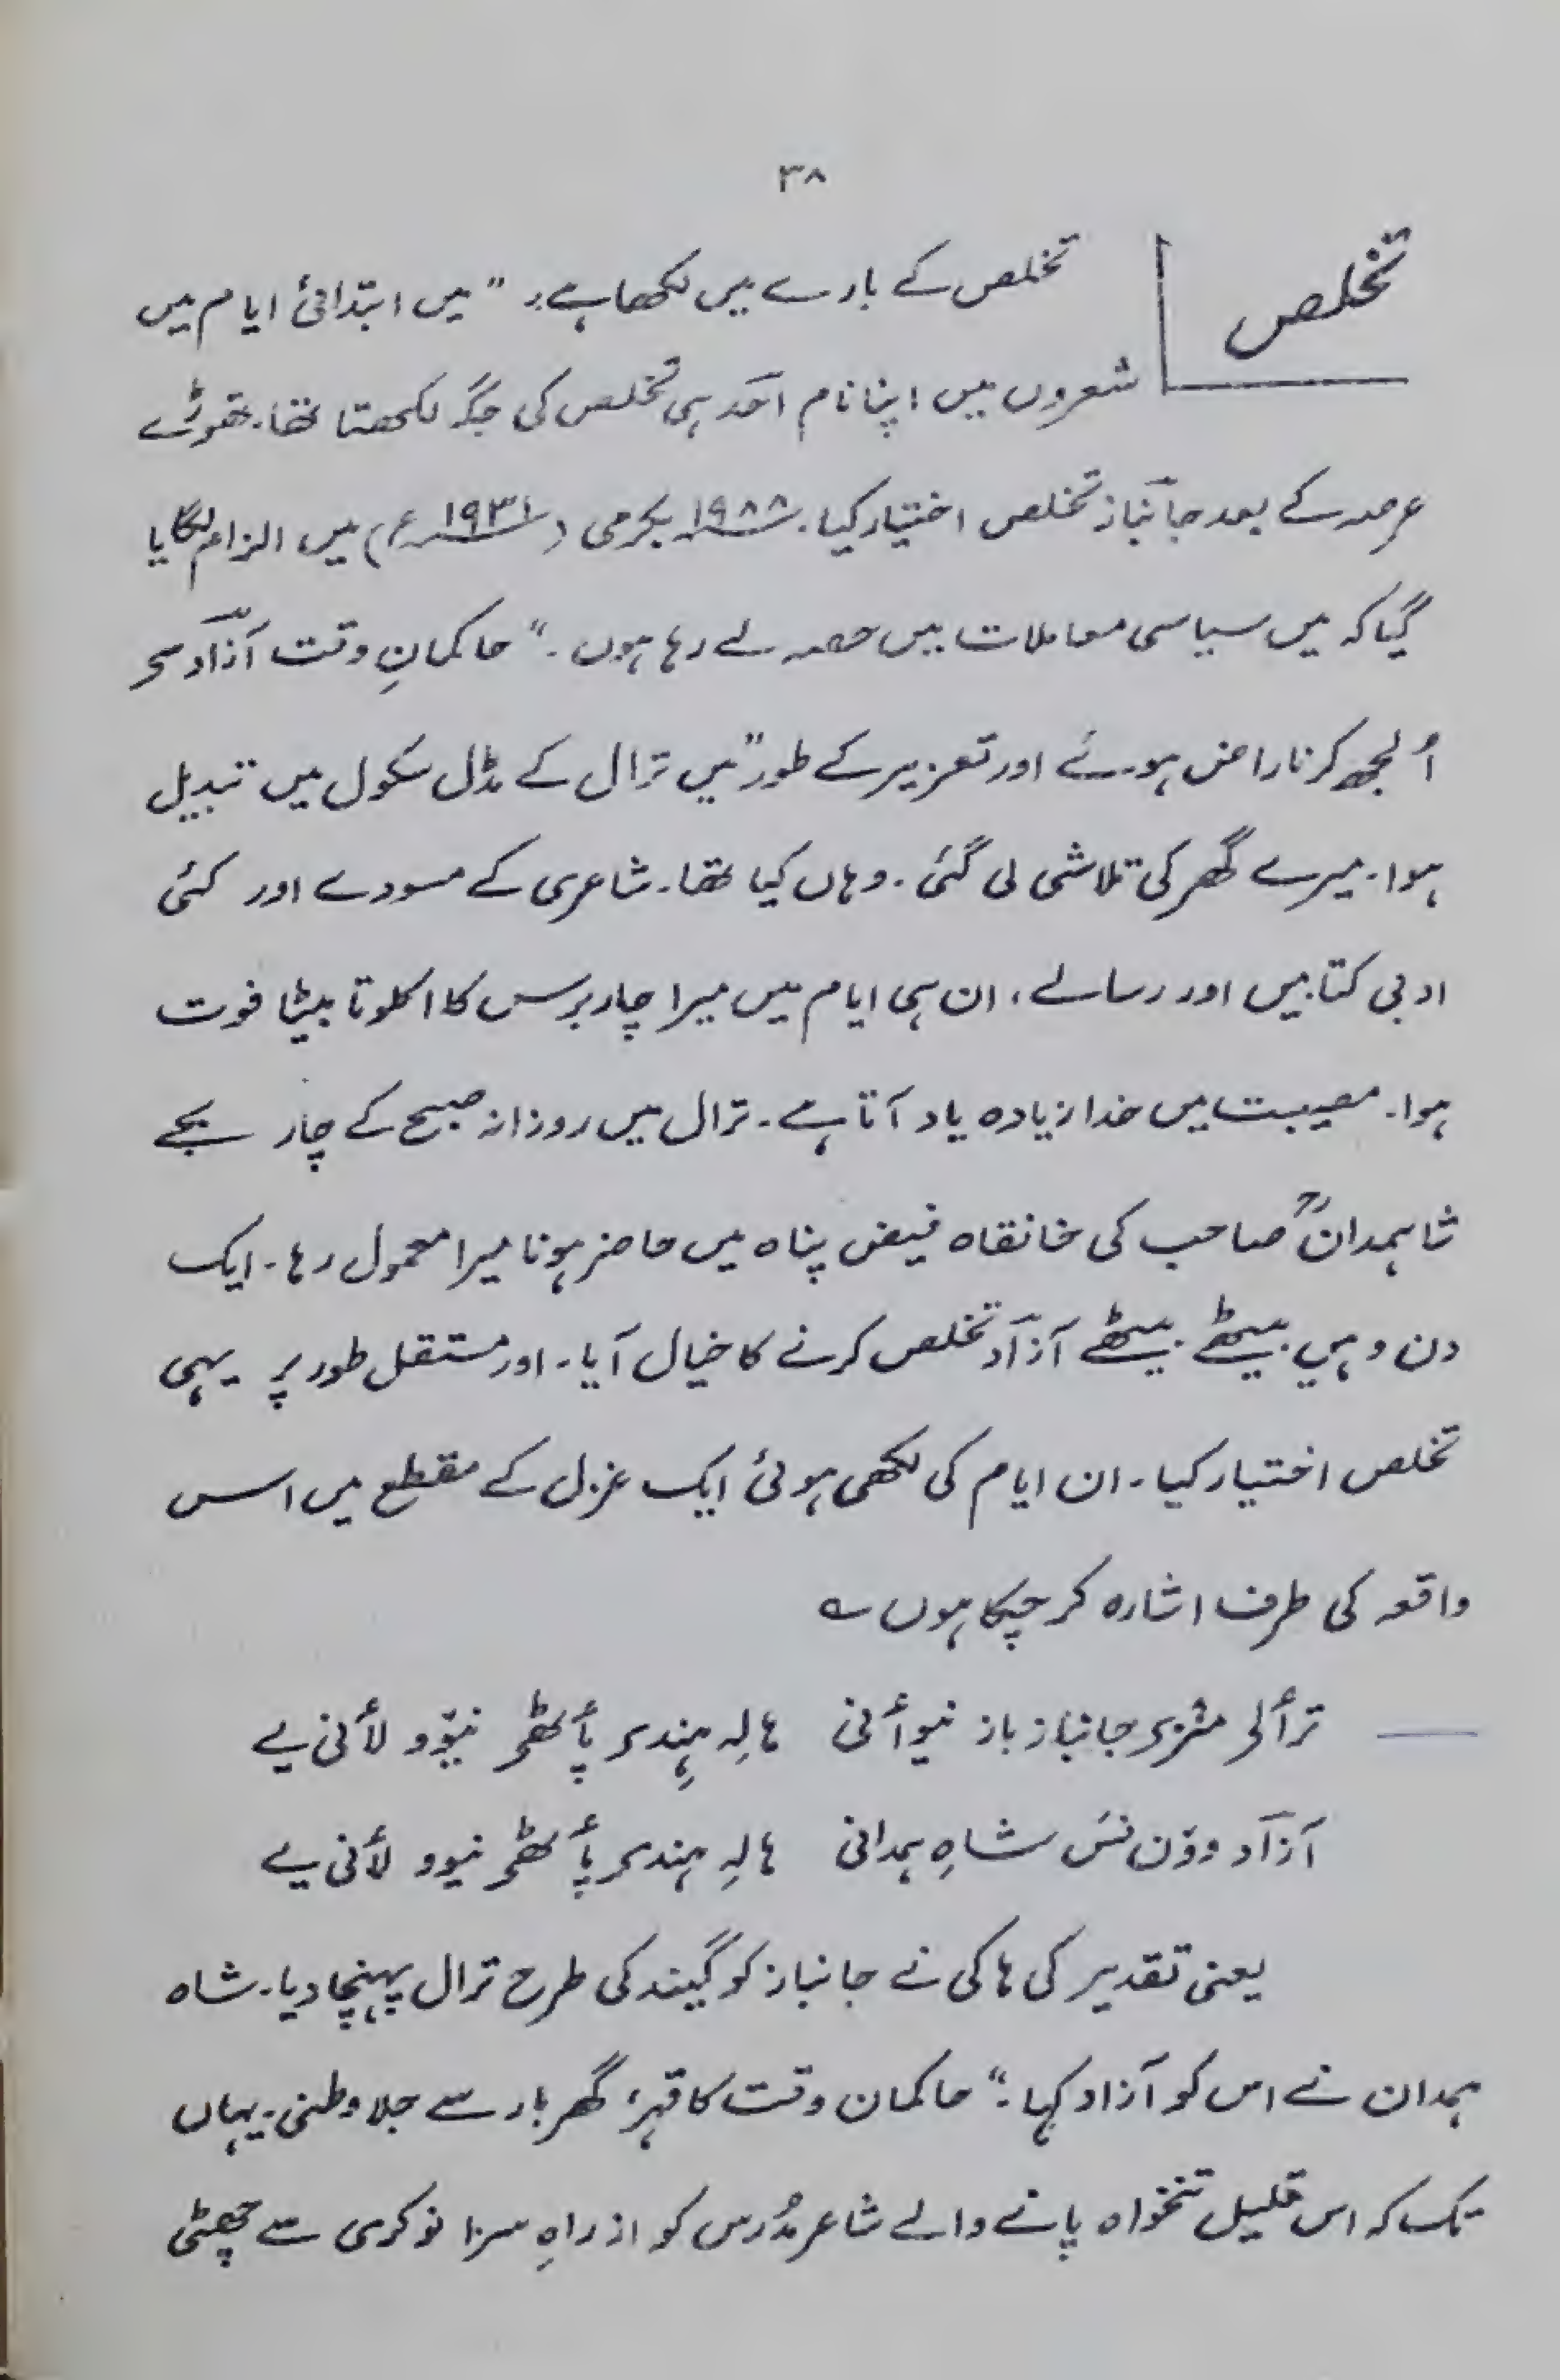 ۳۸
تخلص
تخلص کے بارے میں لکھا ہے: "میں ابتدائی ایام میں
شعروں میں اپنا نام احمد ہی تخلص کی جگہ لکھتا تھا۔ تھوڑے
عرصہ کے بعد جانباز تخلص اختیار کیا۔ ۱۹۸۸ بکرمی (۱۹۳۱ء) میں الزام لگایا
گیا کہ میں سیاسی معاملات میں حصہ لے رہا ہوں۔" حاکمانِ وقت آزاد سے
اُلجھ کر ناراض ہوئے اور تعزیر کے طور "میں ترال کے مڈل سکول میں تبدیل
ہوا۔ میرے گھر کی تلاشی لی گئی۔ وہاں کیا تھا۔ شاعری کے مسودے اور کئی
ادبی کتابیں اور رسالے، ان ہی ایام میں میرا چار برس کا اکلوتا بیٹا فوت
ہوا۔ مصیبت میں خدا زیادہ یاد آتا ہے۔ ترال میں روزانہ صبح کے چار بجے
شاہمدانؒ صاحب کی خانقاہ فیض پناہ میں حاضر ہونا میرا معمول رہا۔ ایک
دن وہیں بیٹھے بیٹھے آزاد تخلص کرنے کا خیال آیا۔ اور مستقل طور پر یہی
تخلص اختیار کیا۔ ان ایام کی لکھی ہوئی ایک غزل کے مقطع میں اس
واقعہ کی طرف اشارہ کر چکا ہوں ؎
جانباز باز نیوأنی ہالہِ پأٹھی لأنی یے
آزاد ووٚن نسَ شاہِ ہمدانی ہالہِ پأٹھی نیوو لأنی یے
یعنی تقدیر کی ہاکی نے جانباز کو گیند کی طرح ترال پہنچا دیا۔ شاہ
ہمدان نے اس کو آزاد کہا۔" حاکمان وقت کا قہر، گھر بار سے جلا وطنی۔ یہاں
تک کہ اس قلیل تنخواہ پانے والے شاعر مُدرس کو از راہِ سزا نوکری سے چھٹی